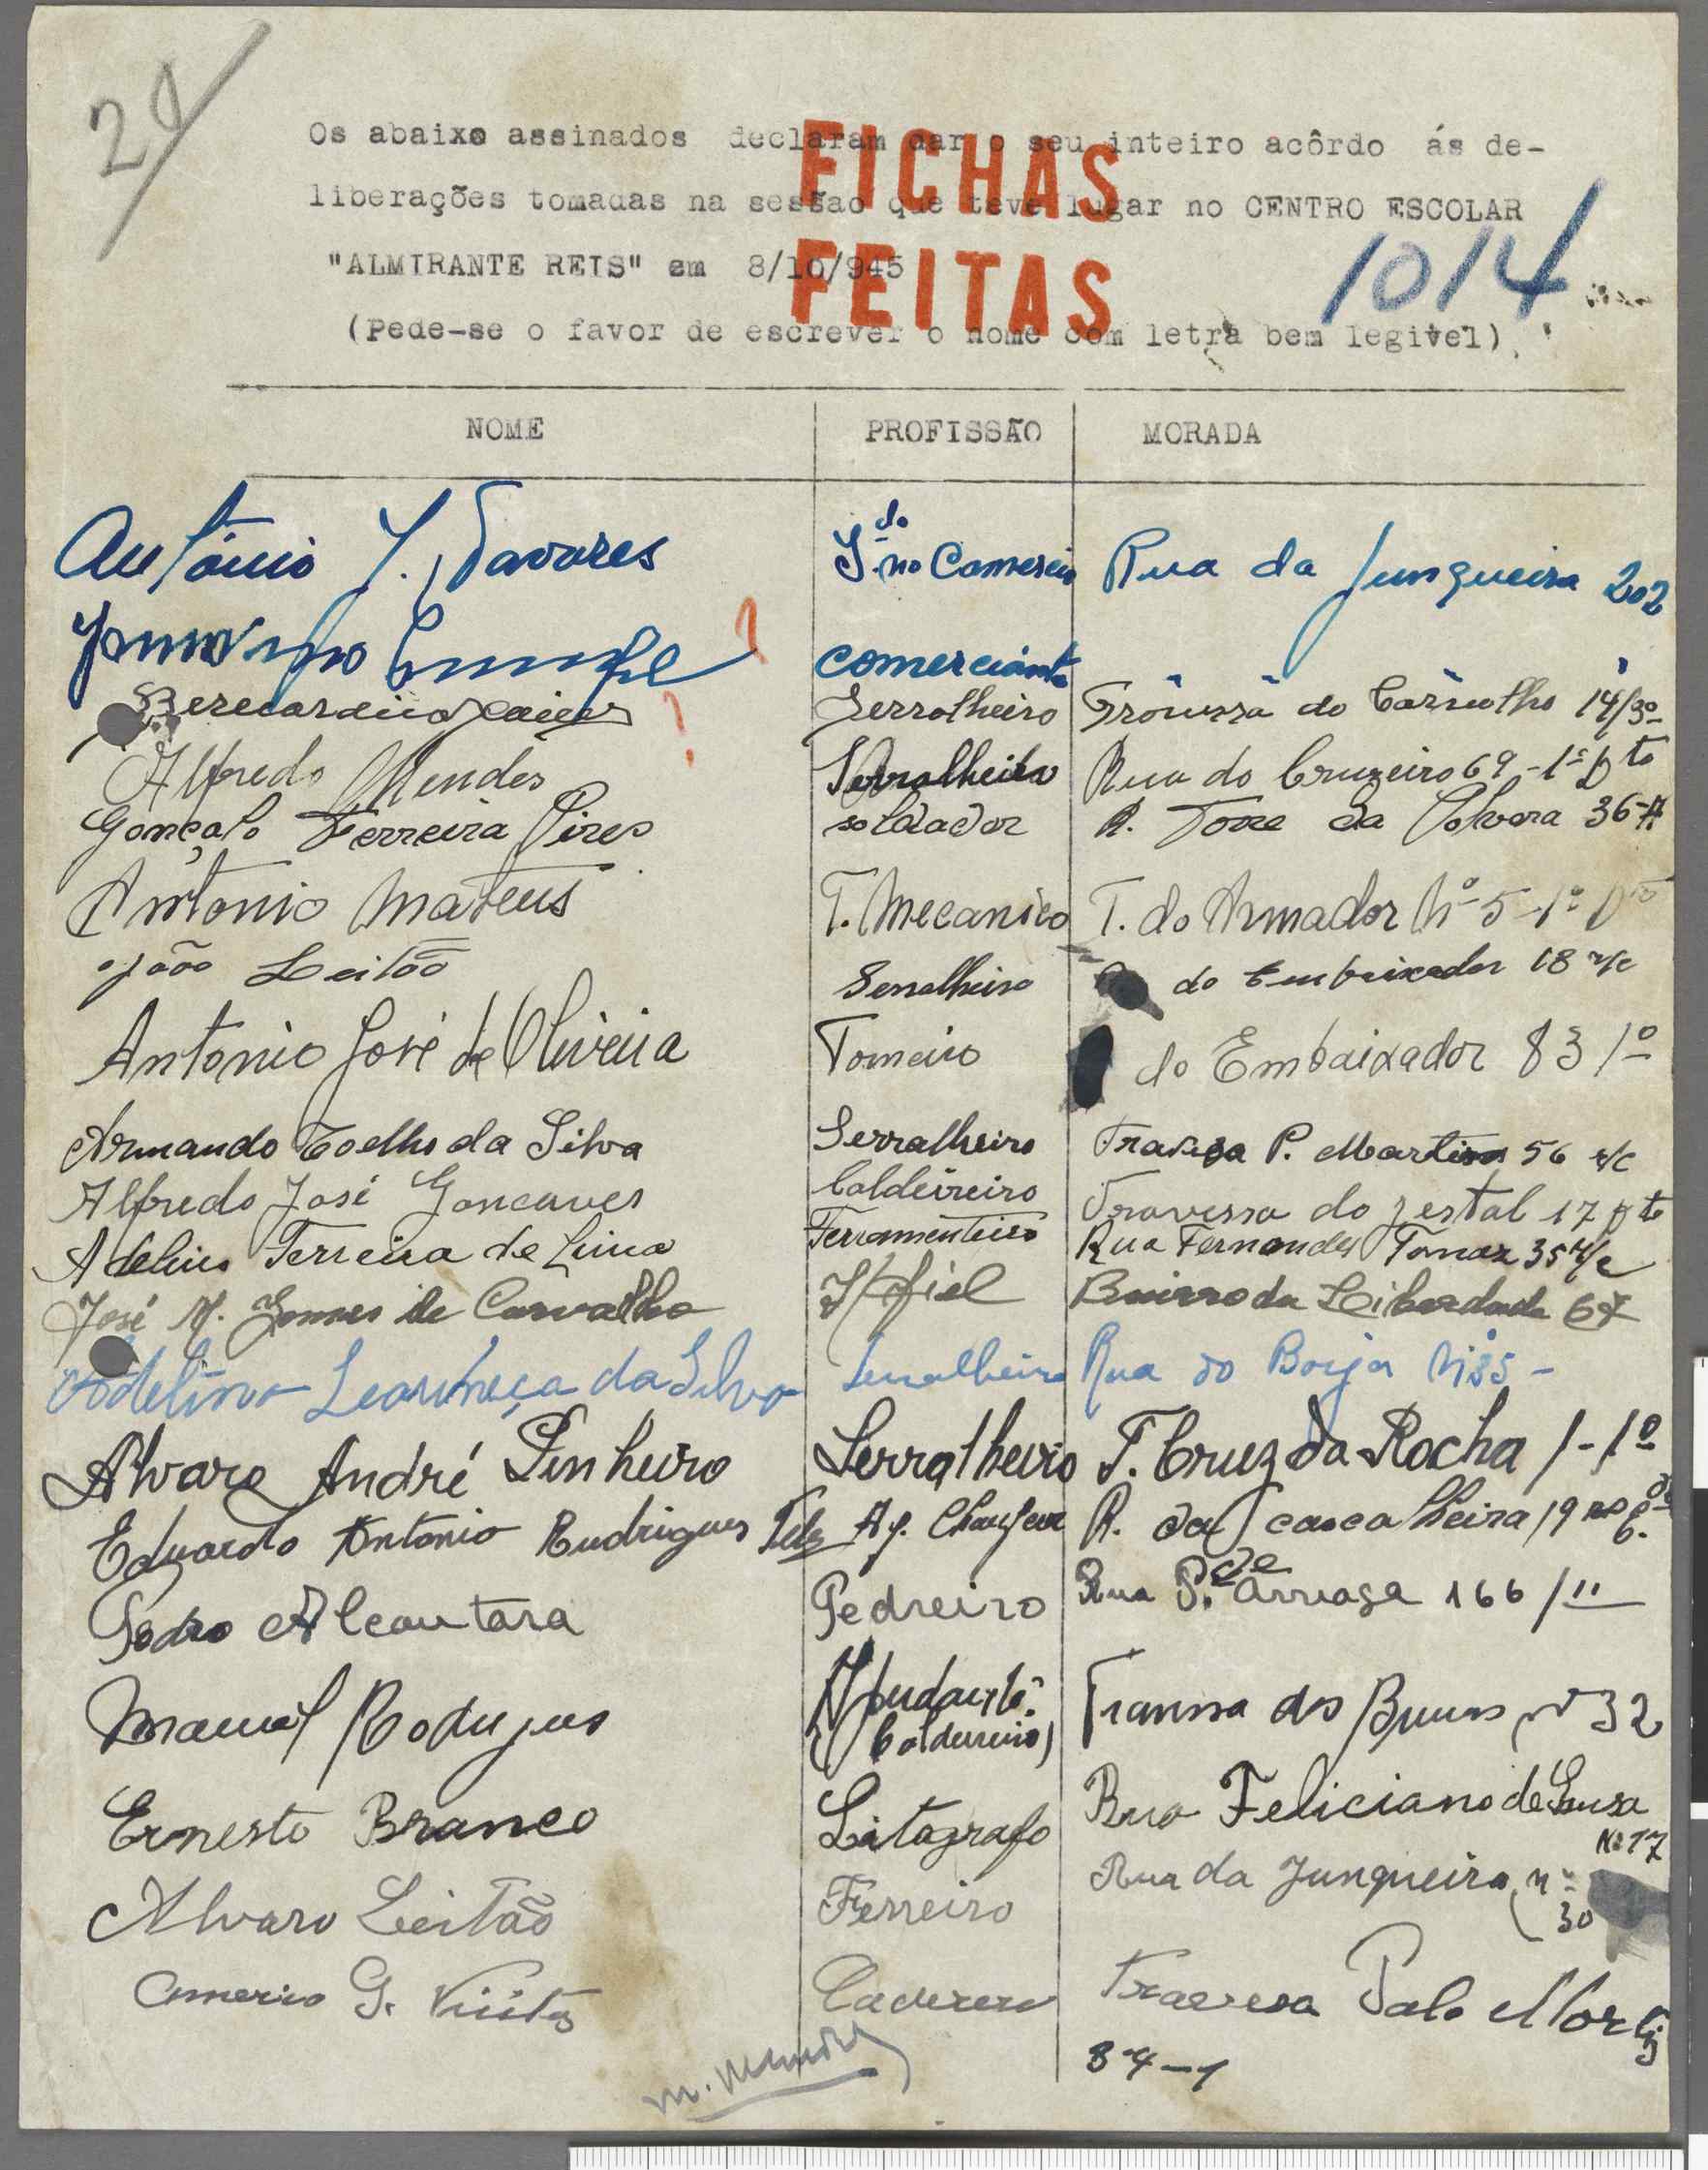 Os abaixo assinados declaram dar o seu inteiro acôrdo ás de-
liberações tomadas na sessão que teve lugar no CENTRO ESCOLAR
"ALMIRANTE REIS" em 8/10/945
(Pede-se o favor de escrever o nome com letra bem legivel)
FICHAS
FEITAS
1014
NOME PROFISSÃO MORADA
António J. Tavares do no Comercio Rua da Junqueira 202
comerciante
Serralheiro do 14/3º
Alfredo Mendes Serralheiro Rua do Cruzeiro 69-1º Dto
Gonçalo Ferreira Pires soldador R. Torre da Polvora 36-A
Antonio Mateus T. Mecanico T. do Armador Nº 5-1º Dto
João Leitão Serralheiro do Embaixador 18 r/c
Antonio José de Oliveira Torneiro do Embaixador 83 1º
Armando Coelho da Silva Serralheiro Travessa P. Martins 56 r/c
Alfredo José Goncaves Caldeireiro Travessa do 17 Dto
Adelino Ferreira de Lima Ferramenteiro Rua Fernandes Tomaz 35 r/c
José M. Gomes de Carvalho Bairro da Leiberdade 67
Adelino da Silva Serralheiro Rua do Borja
Alvaro André Pinheiro Serralheiro T. Cruz da Rocha 1-1º
Eduardo Antonio Rudrigues Aj. Chaufeur R. da cascalheira 19
Pedro Alcantara Pedreiro Rua P. de Arriaga 166
Manuel Rodrigues Ajudante Caldeireiro) Travessa dos 32
Ernesto Branco Litografo Rua Feliciano de Sousa
Nº 17
Alvaro Leitão Ferreiro Rua da Junqueira nº
30
Americo G. Travesa Palo
84-1